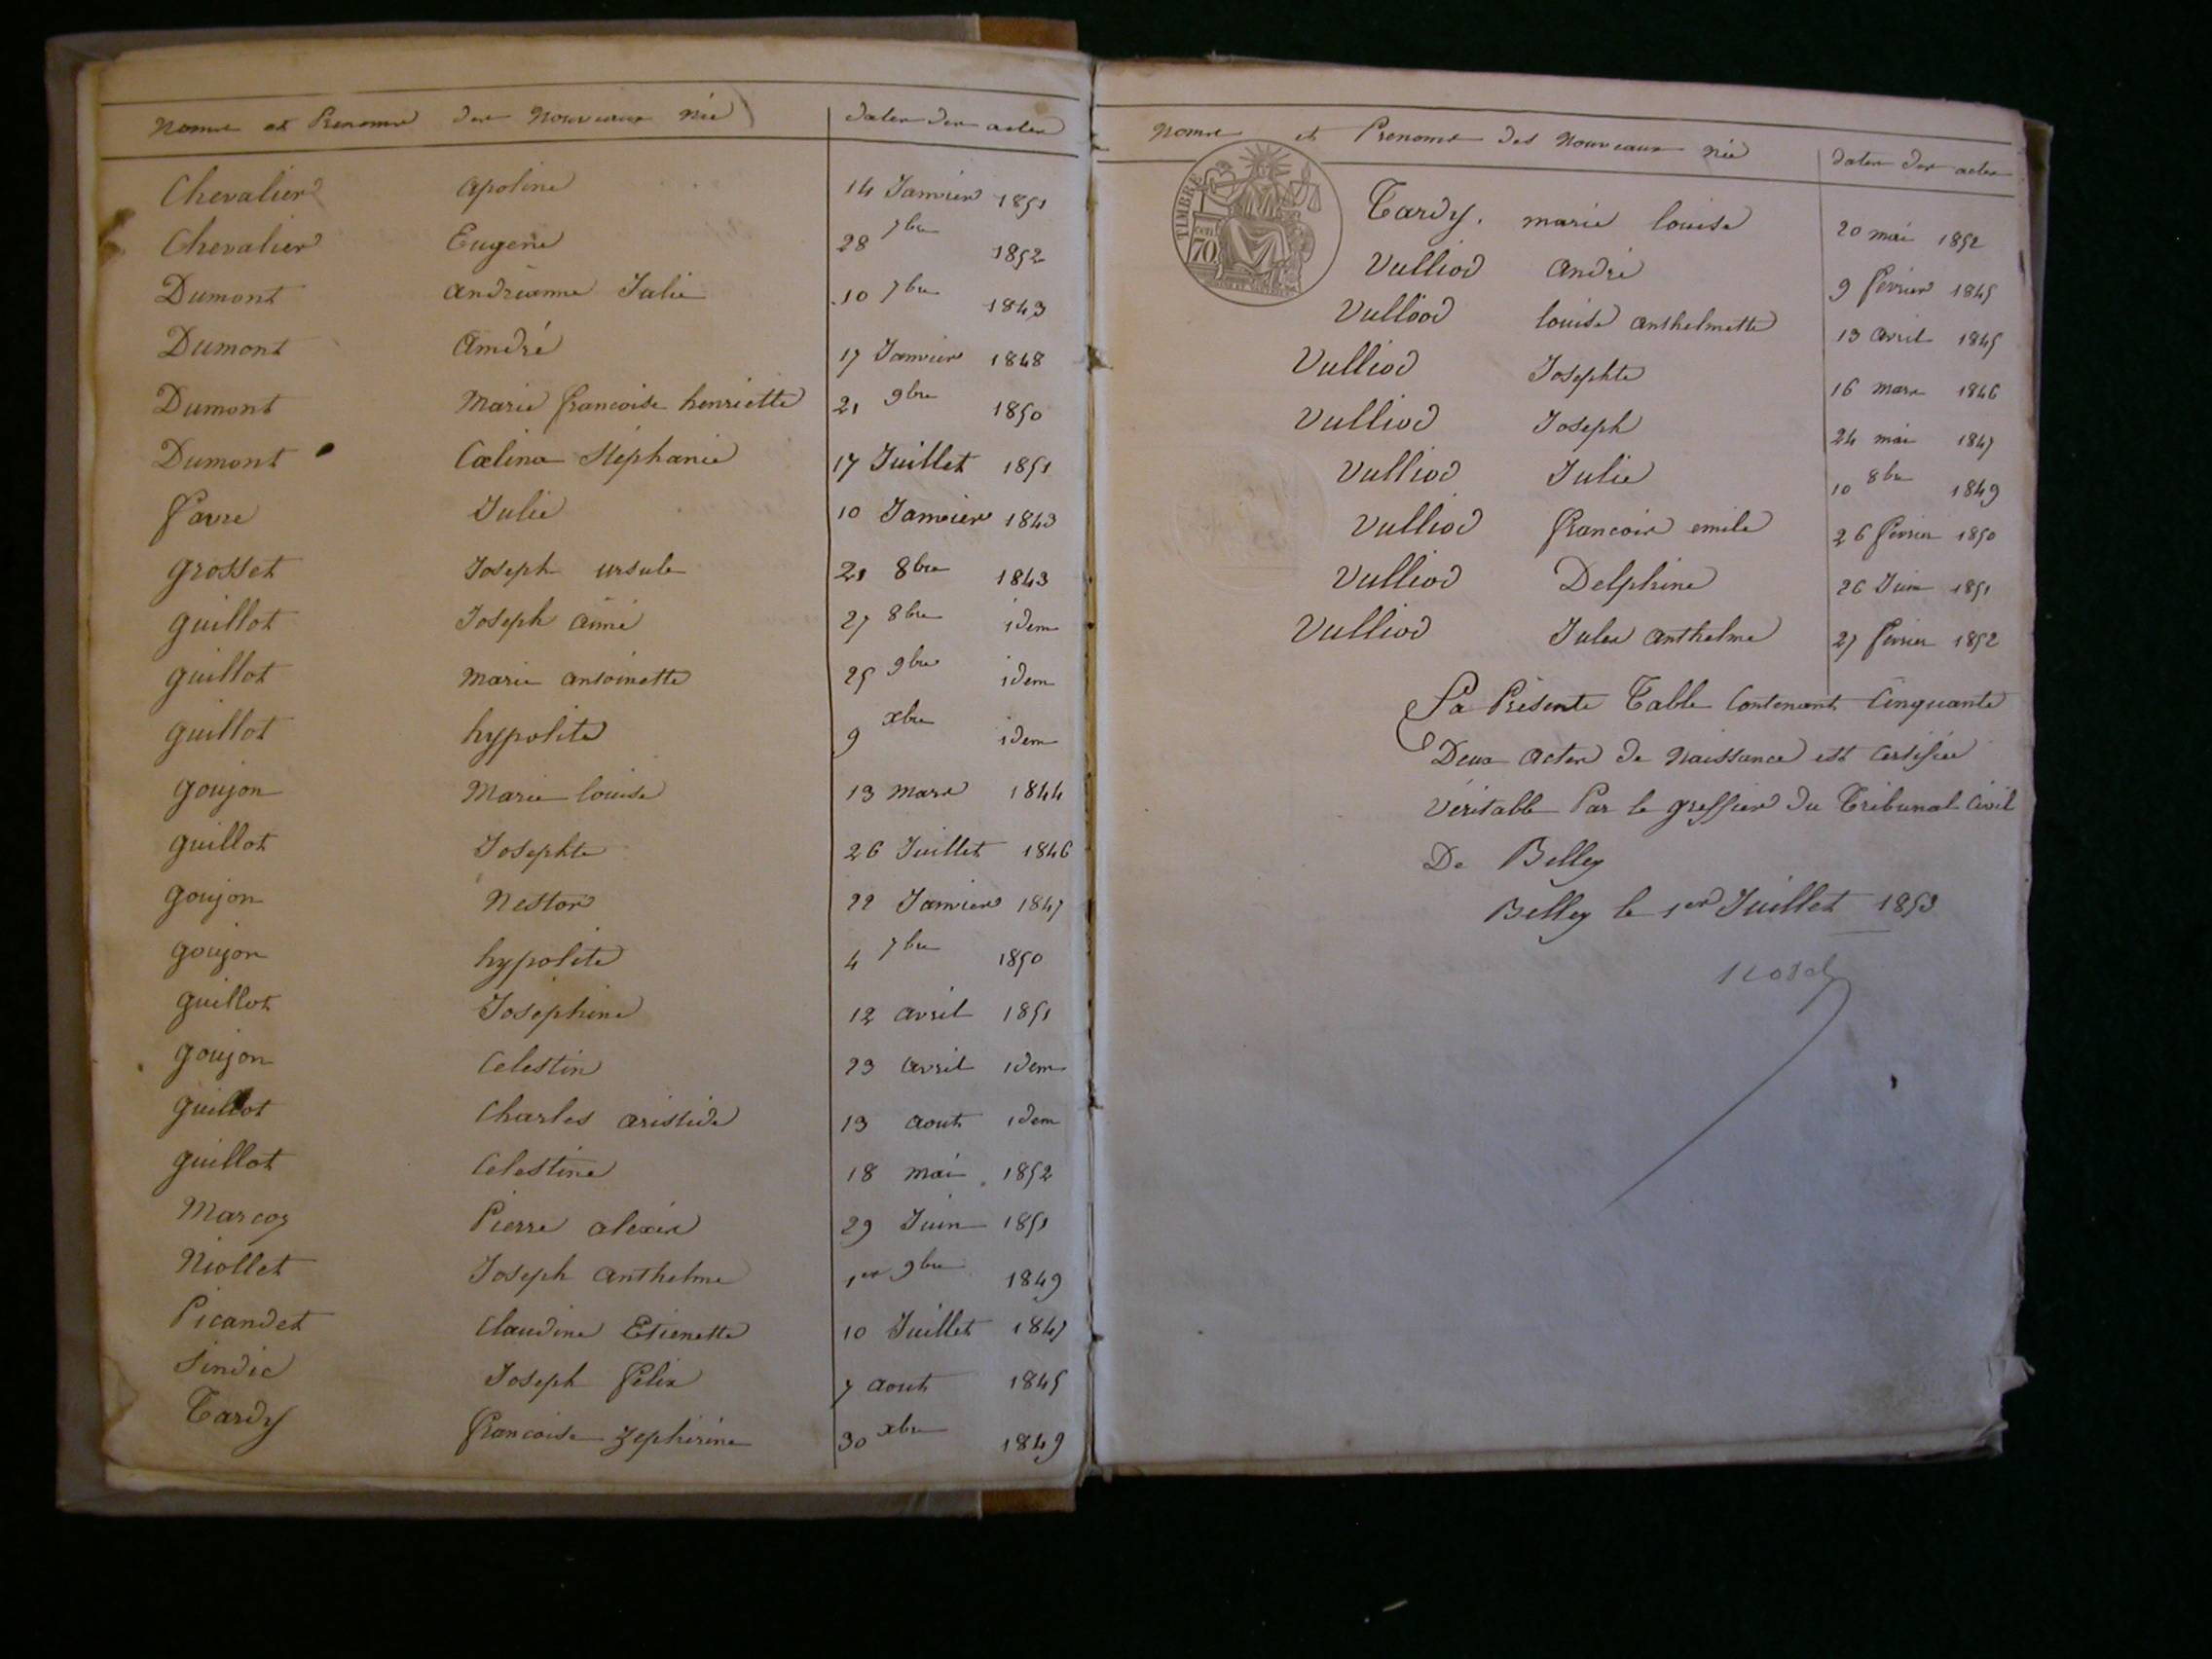 Noms et Prenoms des Nouveaux née dates des actes
Chevalier apoline 14 Janvier 1851
Chevalier Eugene 28 7bre 1852
Dumont andrianne Julie 10 7bre 1843
Dumont André 17 Janvier 1848
Dumont Marie francoise henriette 21 9bre 1850
Dumont Cœlina Stéphanie 17 Juillet 1851
favre Julie 10 Janvier 1843
grosset Joseph ursule 21 8bre 1843
guillot Joseph aimé 27 8bre idem
guillot Marie antoinette 25 9bre idem
guillot hypolite 9 xbre idem
goujon Marie louise 13 mars 1844
guillot Josephte 26 Juillet 1846
goujon Nestor 22 Janvier 1847
goujon hypolite 4 7bre 1850
guillot Joséphine 12 avril 1851
goujon Celestin 23 avril idem
guillot Charles aristide 13 aout idem
guillot Celestine 18 mai 1852
Marcoz Pierre alexis 29 Juin 1851
Niollet Joseph anthelme 1er 9bre 1849
Picandet Claudine Etienette 10 Juillet 1847
Sindic Joseph félix 7 aout 1845
Tardy francoise Zephirine 30 xbre 1849
Noms et Prenoms des Nouveaux née dates des actes
TIMBRE
70 cen
Tardy. marie louise 20 mai 1852
Vulliod andré 9 février 1845
Vulliod louise anthelmette 13 avril 1845
Vulliod Josephte 16 mars 1846
Vulliod Joseph 24 mai 1847
Vulliod Julie 10 8bre 1849
Vulliod francois emile 26 février 1850
Vulliod Delphine 26 Juin 1851
Vulliod Jules anthelme 27 février 1852
La Présente Table Contenant Cinquante
Deux actes de Naissance est certifiée
Véritable Par le greffier du Tribunal Civil
De Belley
Belley le 1er Juillet 1853